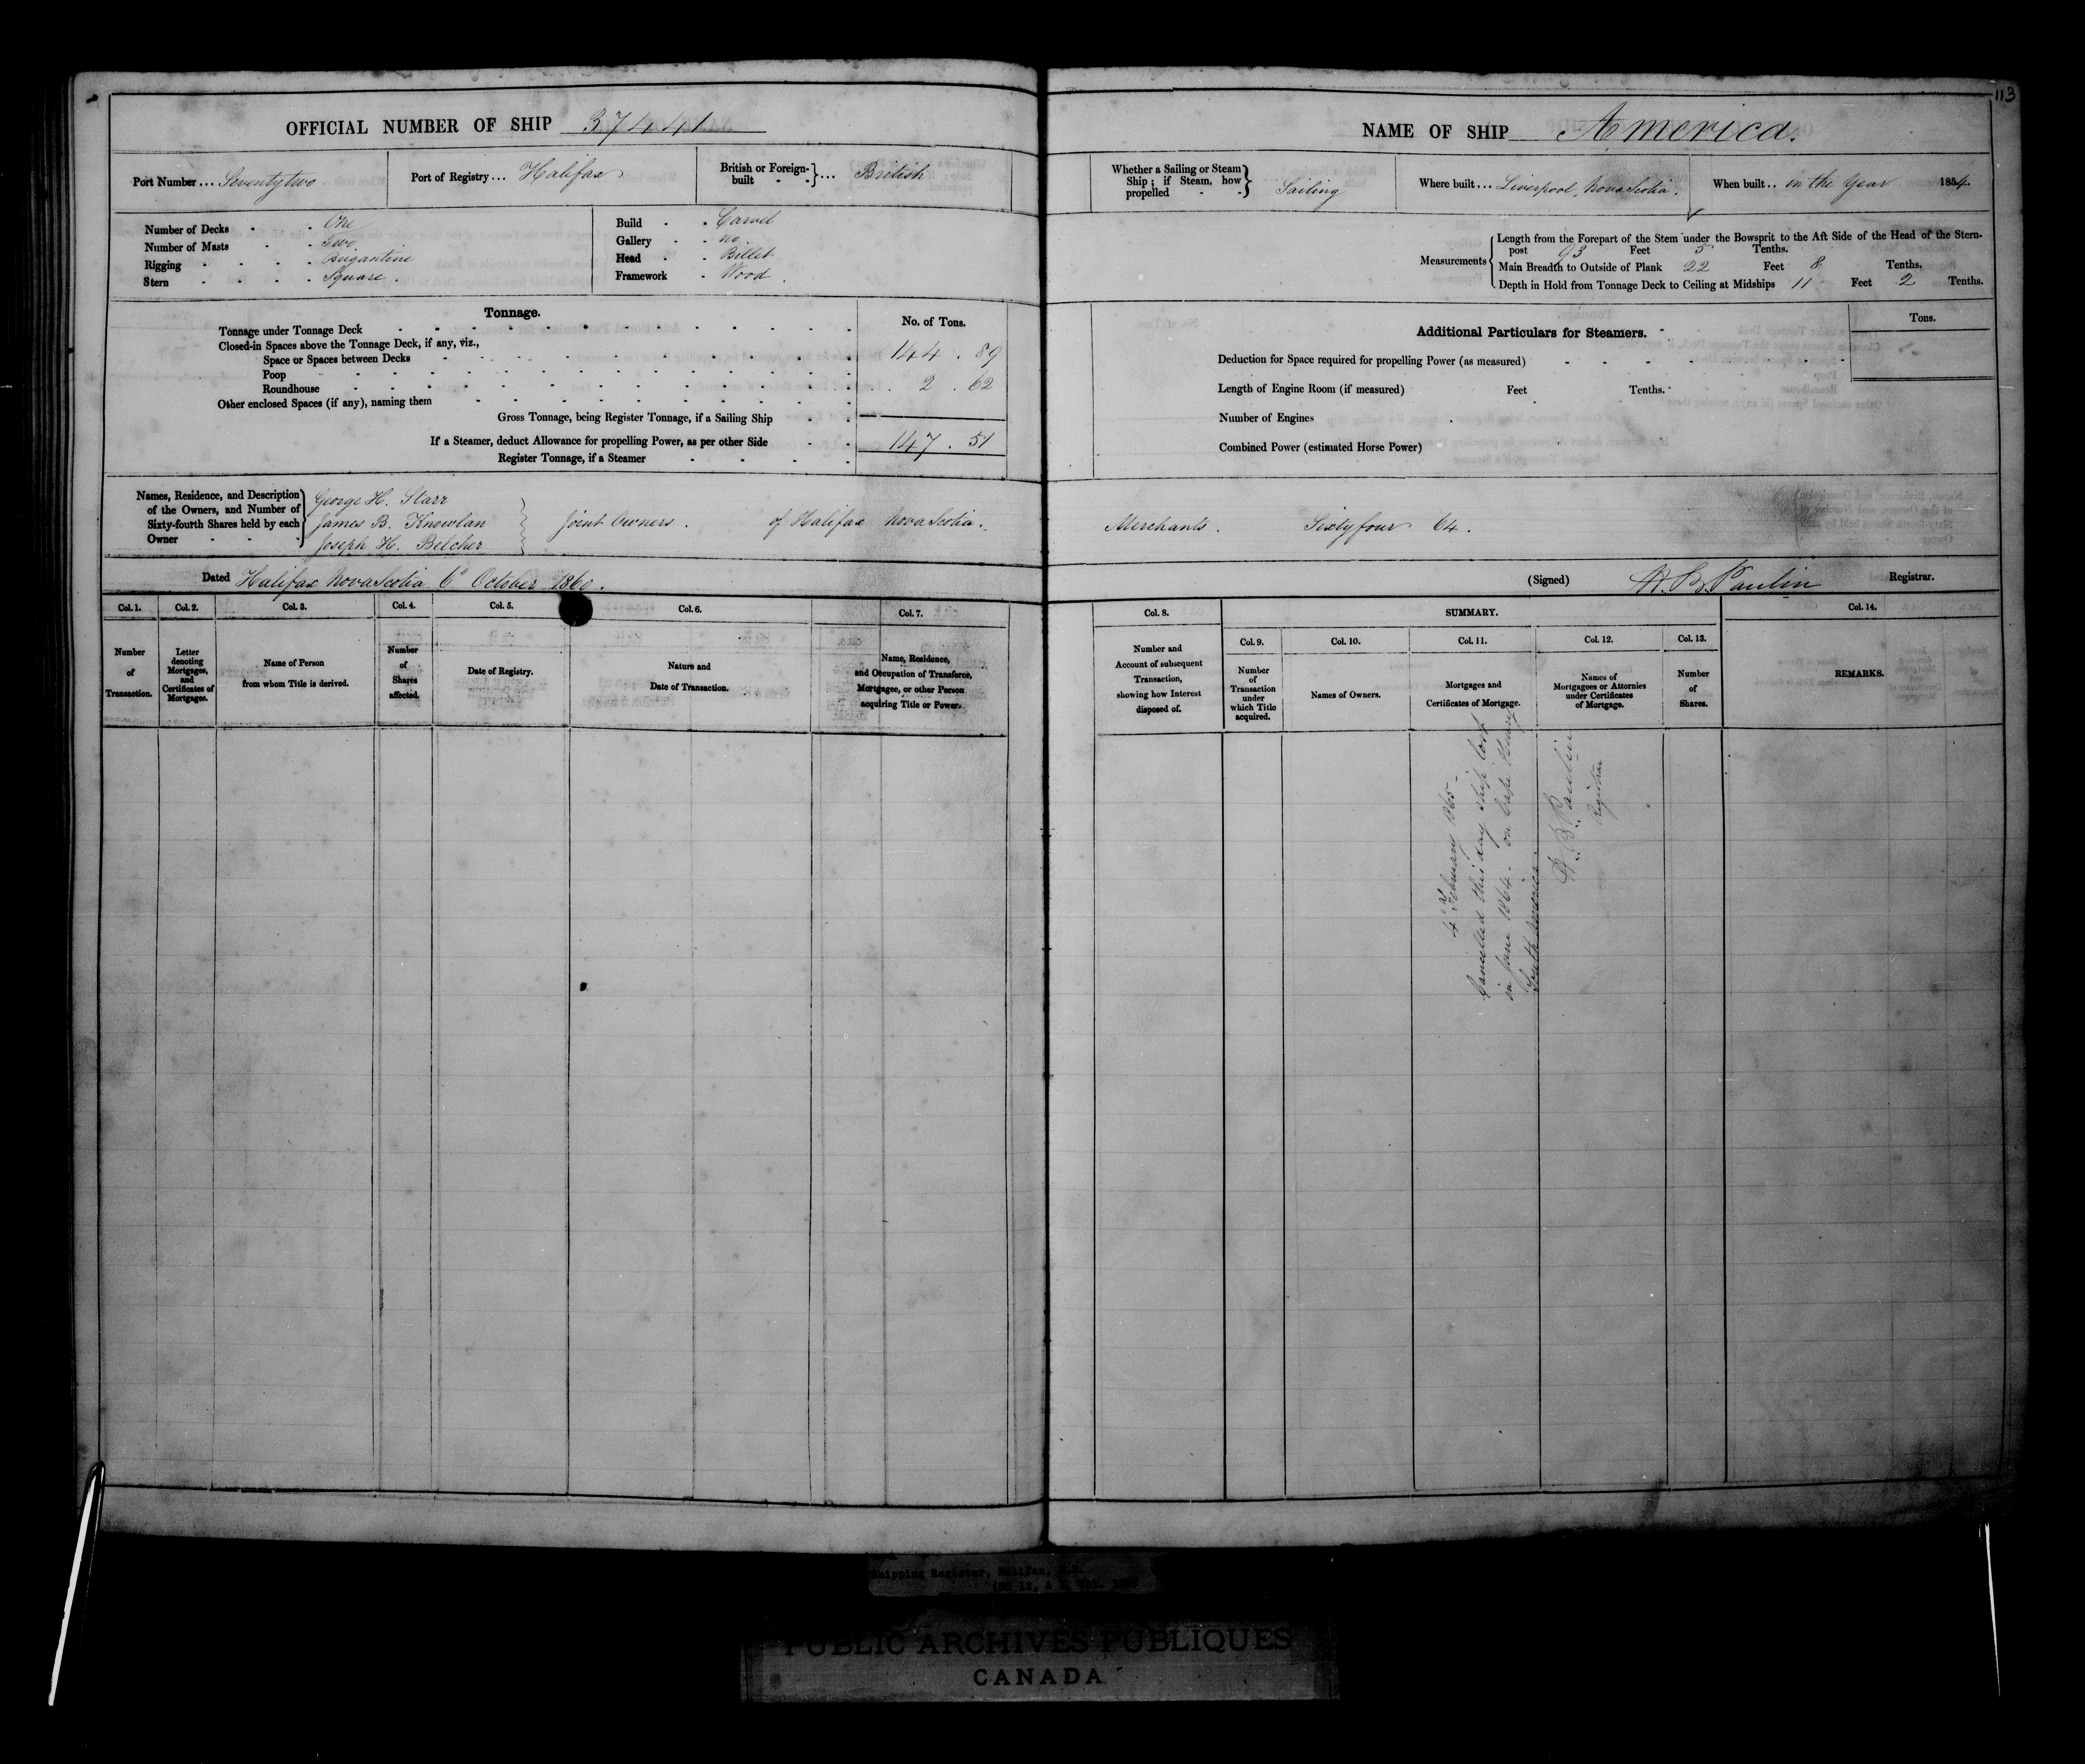 113
OFFICIAL NUMBER OF SHIP 37441
Port Number ... Seventy two
Port of Registry ... Halifax
British or Foreign-built } ... British
Number of Decks One
Number of Masts Two
Rigging Brigantine
Stern Square.
Build Carvel
Gallery no
Head Billet
Framework Wood.
Tonnage.
No. of Tons.
Tonnage under Tonnage Deck
Closed-in Spaces above the Tonnage Deck, if any, viz.,
Space or Spaces between Decks 144.89
Poop
Roundhouse 2.62
Other enclosed Spaces (if any), naming them
Gross Tonnage, being Register Tonnage, if a Sailing Ship
If a Steamer, deduct Allowance for propelling Power, as per other Side 147.51
Register Tonnage, if a Steamer
NAME OF SHIP America.
Whether a Sailing or Steam Ship; if Steam, how propelled } Sailing
Where built ... Liverpool, Nova Scotia.
When built .. in the Year 1854.
Measurements
Length from the Forepart of the Stem under the Bowsprit to the Aft Side of the Head of the Stern-
post 93 Feet 5 Tenths.
Main Breadth to Outside of Plank 22 Feet 8 Tenths.
Depth in Hold from Tonnage Deck to Ceiling at Midships 11 Feet 2 Tenths.
Additional Particulars for Steamers.
Tons.
Deduction for Space required for propelling Power (as measured)
Length of Engine Room (if measured) Feet Tenths.
Number of Engines
Combined Power (estimated Horse Power)
Names, Residence, and Description
of the Owners, and Number of
Sixty-fourth Shares held by each
Owner
George H. Starr
James B. Knowlan
Joseph H. Belcher
Joint Owners. of Halifax Nova Scotia. Merchants. Sixty four 64.
Dated Halifax Nova Scotia 6th October 1860.
(Signed) H. B. Paulin Registrar.
Col. 1. Number of Transaction.
Col. 2. Letter denoting Mortgages, and Certificates of Mortgages.
Col. 3. Name of Person from whom Title is derived.
Col. 4. Number of Shares affected.
Col. 5. Date of Registry.
Col. 6. Nature and Date of Transaction.
Col. 7. Name, Residence, and Occupation of Transferee, Mortgagee, or other Person acquiring Title or Power.
Col. 8. Number and Account of subsequent Transaction, showing how Interest disposed of.
SUMMARY.
Col. 9. Number of Transaction under which Title acquired.
Col. 10. Names of Owners.
Col. 11. Mortgages and Certificates of Mortgage.
Col. 12. Names of Mortgagees or Attornies under Certificates of Mortgage.
Col. 13. Number of Shares.
Col. 14. REMARKS.
February 1865
Cancelled this day ship lost
in June 1864 - on Cape
South America.
H. B. Paulin
Registrar
Shipping Register, Halifax, N.S.
PUBLIC ARCHIVES PUBLIQUES
CANADA